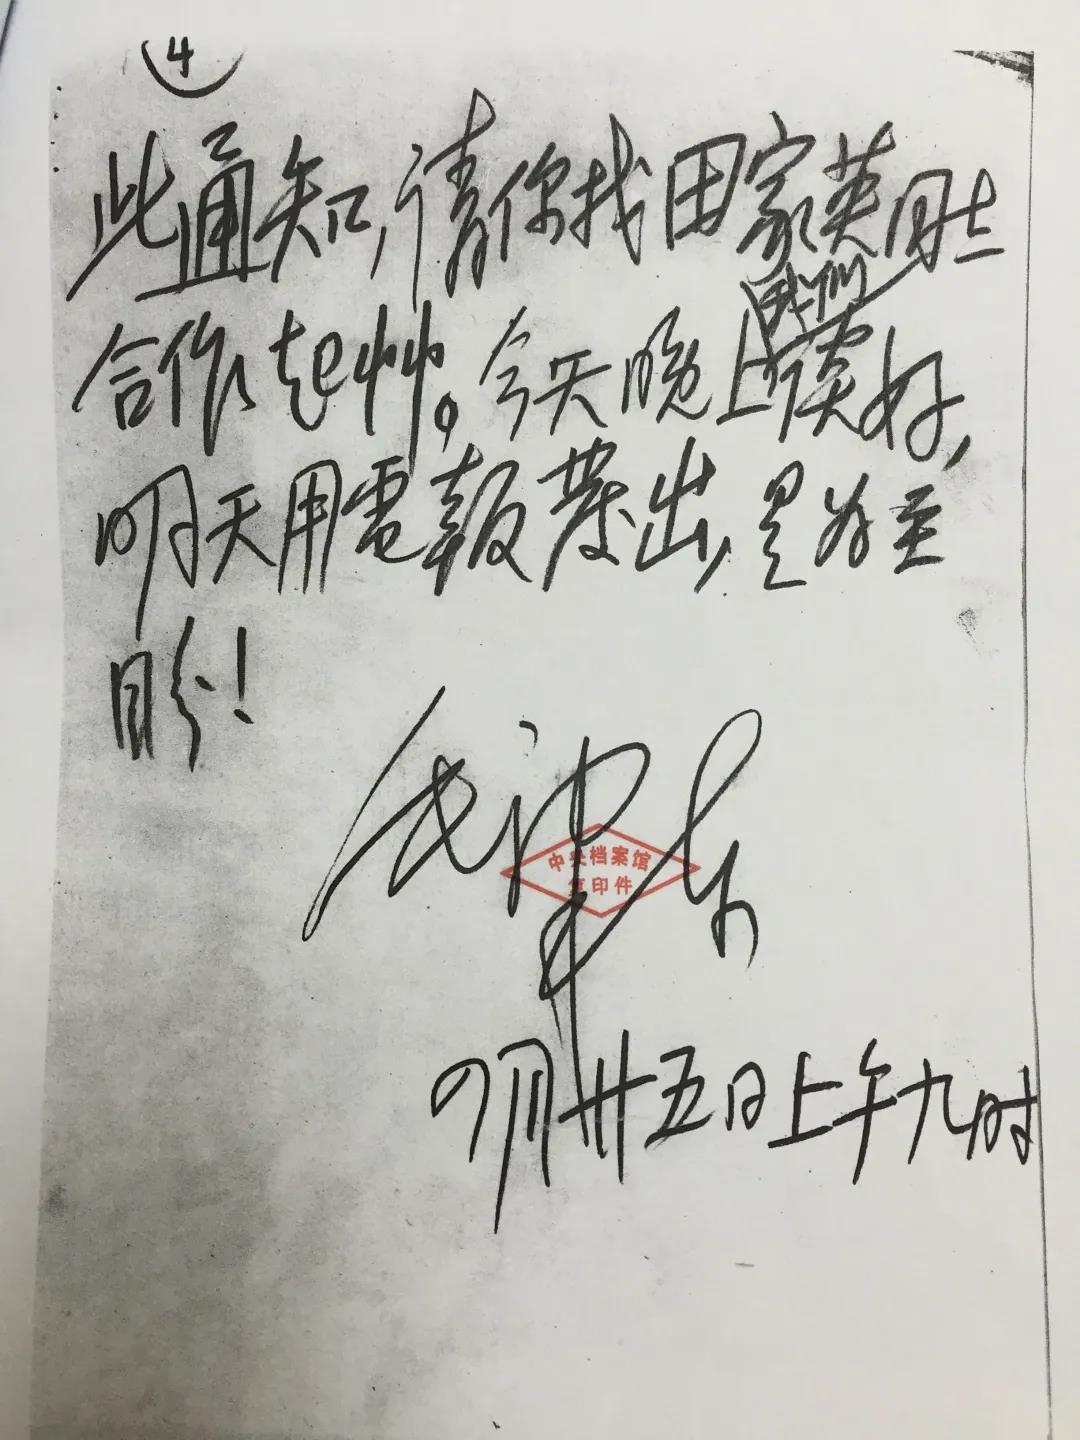 4
此通知,请你找田家英同志
合作起艸。今天晚上我们谈好,
明天用電報發出,是为至
盼!
毛泽东
中央档案馆
复印件
四月廿五日上午九时